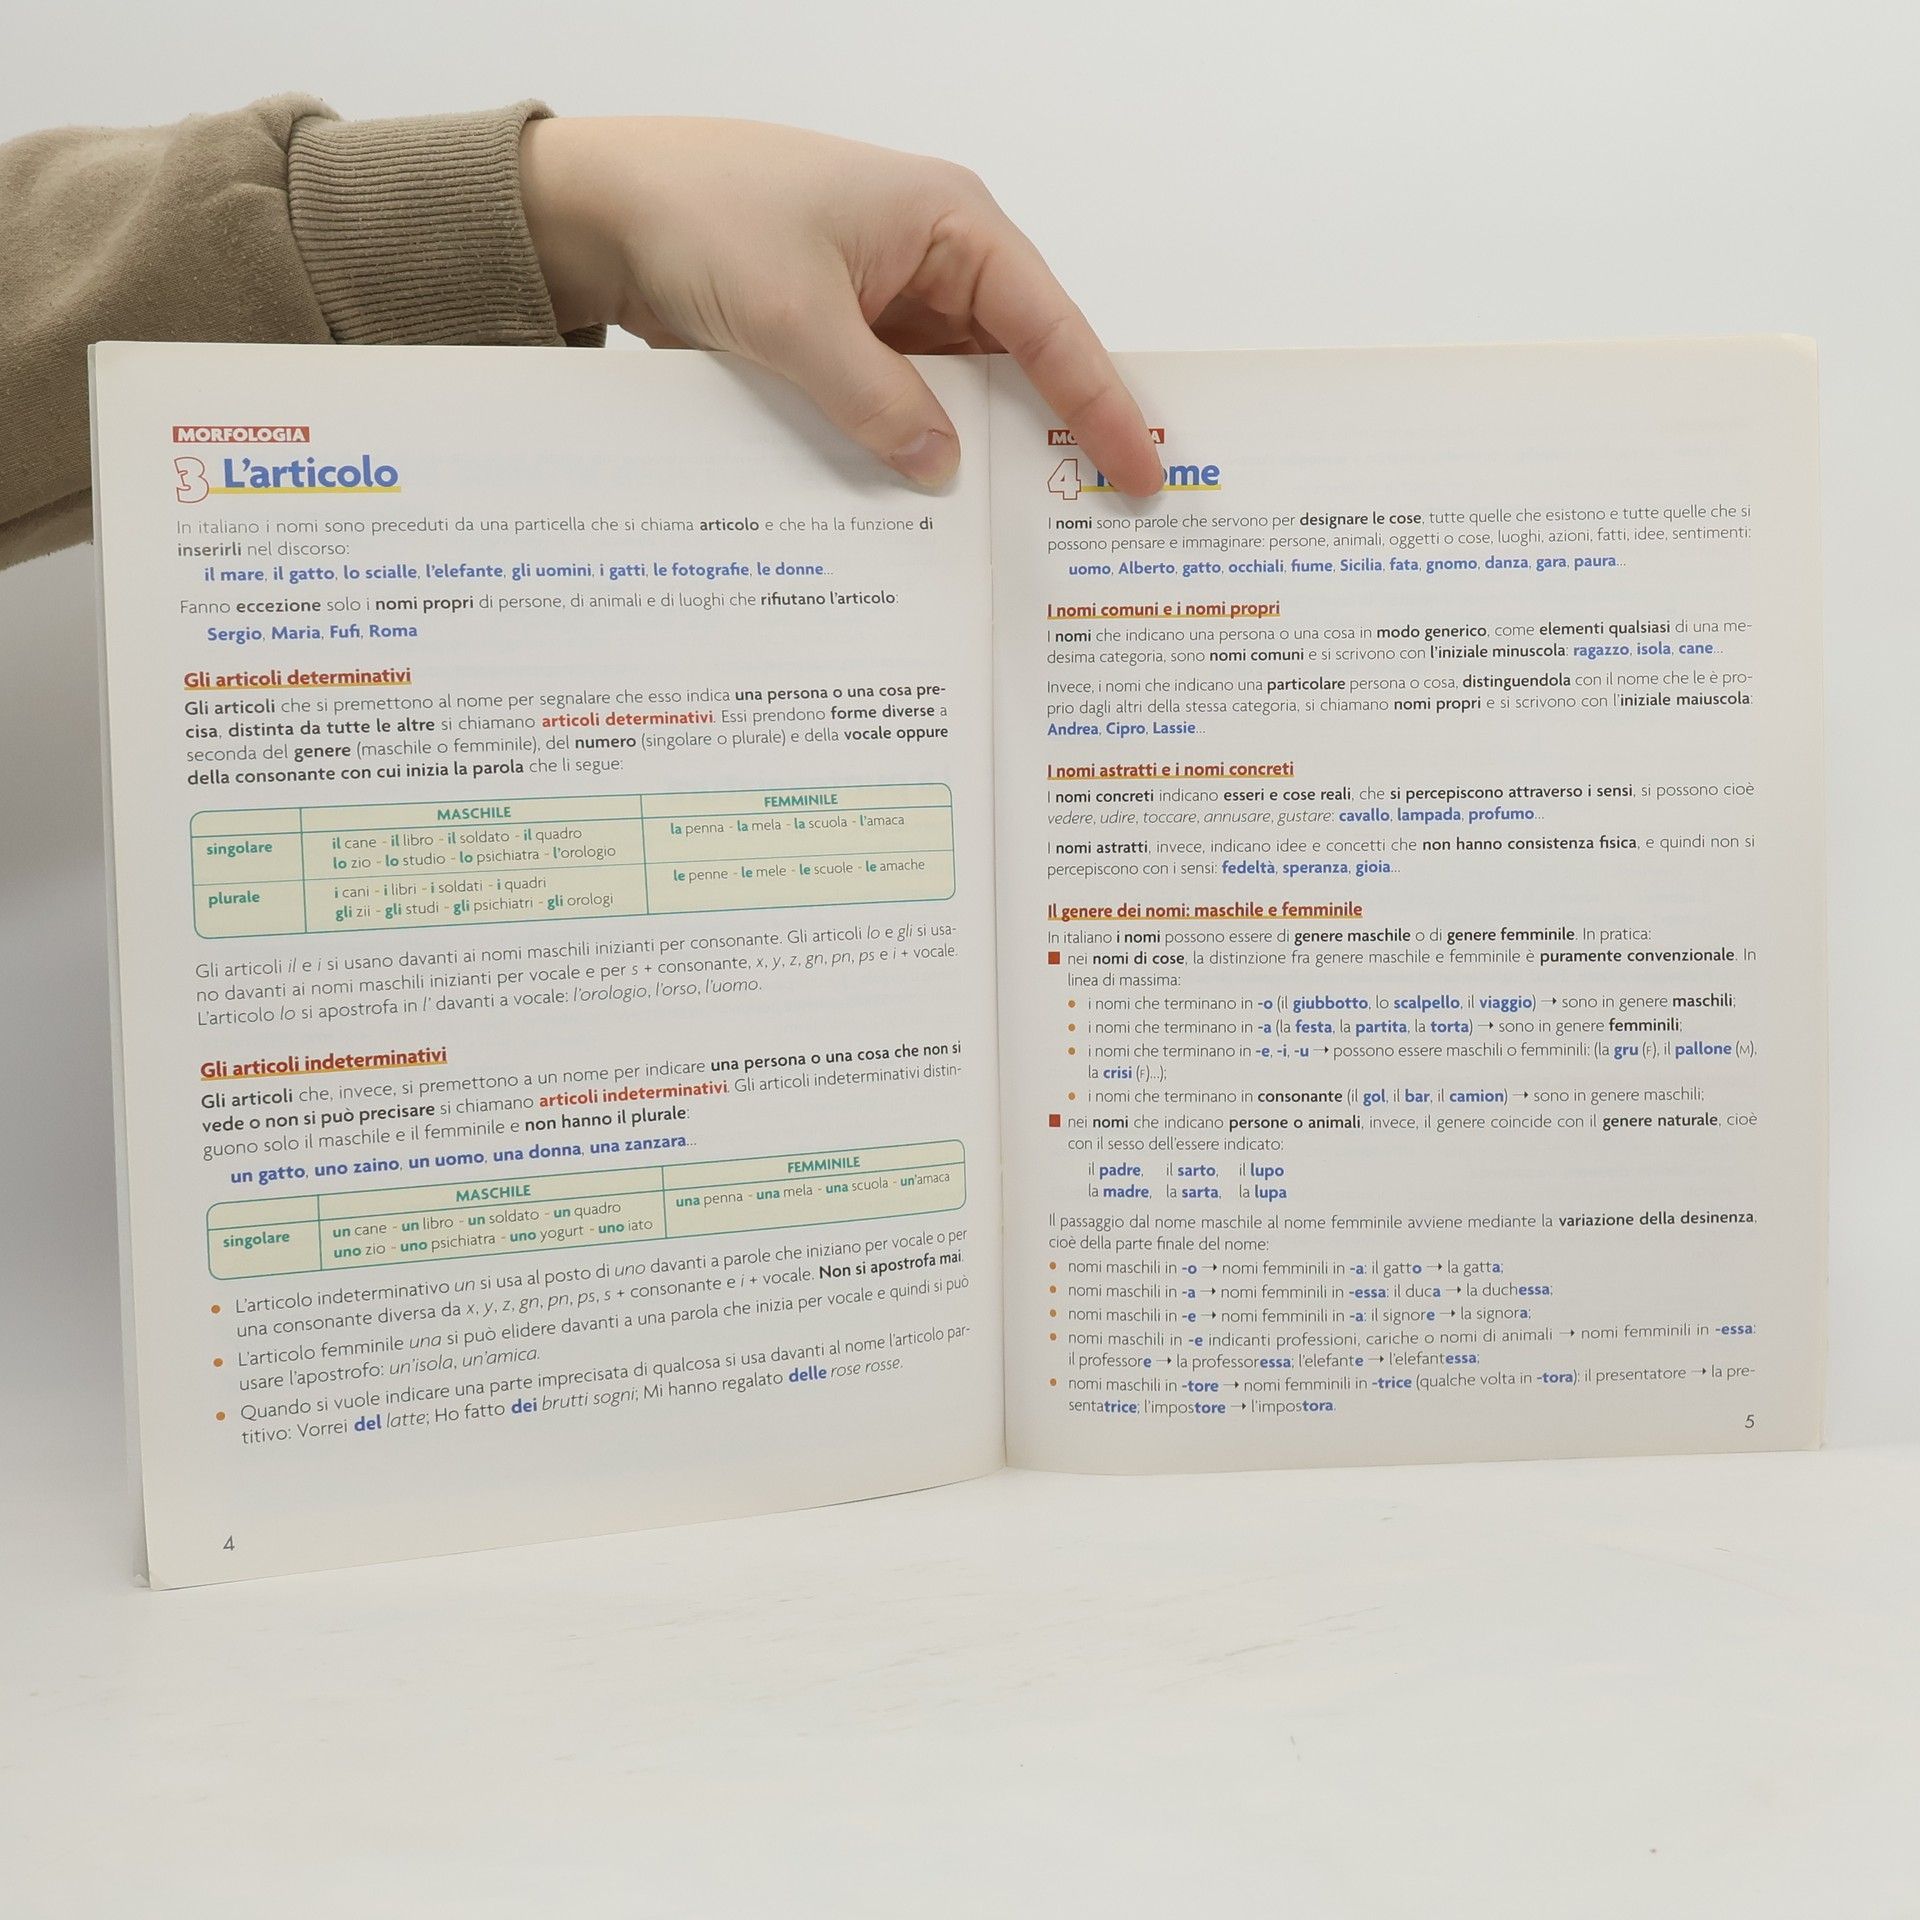 MORFOLOGIA
3 L'articolo
In italiano i nomi sono preceduti da una particella che si chiama articolo e che ha la funzione di
inserirli nel discorso:
il mare, il gatto, lo scialle, l'elefante, gli uomini, i gatti, le fotografie, le donne...
Fanno eccezione solo i nomi propri di persone, di animali e di luoghi che rifiutano l'articolo:
Sergio, Maria, Fufi, Roma
Gli articoli determinativi
Gli articoli che si premettono al nome per segnalare che esso indica una persona o una cosa pre-
cisa, distinta da tutte le altre si chiamano articoli determinativi. Essi prendono forme diverse a
seconda del genere (maschile o femminile), del numero (singolare o plurale) e della vocale oppure
della consonante con cui inizia la parola che li segue:
MASCHILE FEMMINILE
singolare
il cane - il libro - il soldato - il quadro
lo zio - lo studio - lo psichiatra - l'orologio
la penna - la mela - la scuola - l'amaca
plurale
i cani - i libri - i soldati - i quadri
gli zii - gli studi - gli psichiatri - gli orologi
le penne - le mele - le scuole - le amache
Gli articoli il e i si usano davanti ai nomi maschili inizianti per consonante. Gli articoli lo e gli si usa-
no davanti ai nomi maschili inizianti per vocale e per s + consonante, x, y, z, gn, pn, ps e i + vocale.
L'articolo lo si apostrofa in l' davanti a vocale: l'orologio, l'orso, l'uomo.
Gli articoli indeterminativi
Gli articoli che, invece, si premettono a un nome per indicare una persona o una cosa che non si
vede o non si può precisare si chiamano articoli indeterminativi. Gli articoli indeterminativi distin-
guono solo il maschile e il femminile e non hanno il plurale:
un gatto, uno zaino, un uomo, una donna, una zanzara...
MASCHILE FEMMINILE
singolare
un cane - un libro - un soldato - un quadro
uno zio - uno psichiatra - uno yogurt - uno iato
una penna - una mela - una scuola - un'amaca
• L'articolo indeterminativo un si usa al posto di uno davanti a parole che iniziano per vocale o per
una consonante diversa da x, y, z, gn, pn, ps, s + consonante e i + vocale. Non si apostrofa mai.
• L'articolo femminile una si può elidere davanti a una parola che inizia per vocale e quindi si può
usare l'apostrofo: un'isola, un'amica.
• Quando si vuole indicare una parte imprecisata di qualcosa si usa davanti al nome l'articolo par-
titivo: Vorrei del latte; Ho fatto dei brutti sogni; Mi hanno regalato delle rose rosse.
4
4
I nomi sono parole che servono per designare le cose, tutte quelle che esistono e tutte quelle che si
possono pensare e immaginare: persone, animali, oggetti o cose, luoghi, azioni, fatti, idee, sentimenti:
uomo, Alberto, gatto, occhiali, fiume, Sicilia, fata, gnomo, danza, gara, paura...
I nomi comuni e i nomi propri
I nomi che indicano una persona o una cosa in modo generico, come elementi qualsiasi di una me-
desima categoria, sono nomi comuni e si scrivono con l'iniziale minuscola: ragazzo, isola, cane...
Invece, i nomi che indicano una particolare persona o cosa, distinguendola con il nome che le è pro-
prio dagli altri della stessa categoria, si chiamano nomi propri e si scrivono con l'iniziale maiuscola:
Andrea, Cipro, Lassie...
I nomi astratti e i nomi concreti
I nomi concreti indicano esseri e cose reali, che si percepiscono attraverso i sensi, si possono cioè
vedere, udire, toccare, annusare, gustare: cavallo, lampada, profumo...
I nomi astratti, invece, indicano idee e concetti che non hanno consistenza fisica, e quindi non si
percepiscono con i sensi: fedeltà, speranza, gioia...
Il genere dei nomi: maschile e femminile
In italiano i nomi possono essere di genere maschile o di genere femminile. In pratica:
■ nei nomi di cose, la distinzione fra genere maschile e femminile è puramente convenzionale. In
linea di massima:
• i nomi che terminano in -o (il giubbotto, lo scalpello, il viaggio) → sono in genere maschili;
• i nomi che terminano in -a (la festa, la partita, la torta) → sono in genere femminili;
• i nomi che terminano in -e, -i, -u → possono essere maschili o femminili: (la gru (F), il pallone (M),
la crisi (F)...);
• i nomi che terminano in consonante (il gol, il bar, il camion) → sono in genere maschili;
■ nei nomi che indicano persone o animali, invece, il genere coincide con il genere naturale, cioè
con il sesso dell'essere indicato:
il padre, il sarto, il lupo
la madre, la sarta, la lupa
Il passaggio dal nome maschile al nome femminile avviene mediante la variazione della desinenza,
cioè della parte finale del nome:
• nomi maschili in -o → nomi femminili in -a: il gatto → la gatta;
• nomi maschili in -a → nomi femminili in -essa: il duca → la duchessa;
• nomi maschili in -e → nomi femminili in -a: il signore → la signora;
• nomi maschili in -e indicanti professioni, cariche o nomi di animali → nomi femminili in -essa:
il professore → la professoressa; l'elefante → l'elefantessa;
• nomi maschili in -tore → nomi femminili in -trice (qualche volta in -tora): il presentatore → la pre-
sentatrice; l'impostore → l'impostora.
5